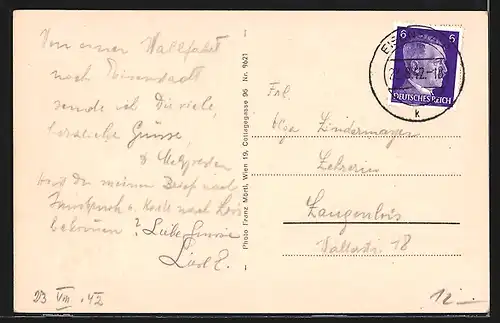 Von einer Wallfahrt
nach Eisenstadt
sende ich Dir viele,
herzliche Grüsse,
Hast Du meinen Brief nach
Innsbruck u. Karte nach
bekommen? Liebe Grüsse
Liesl E.
23 VIII. 42
Photo Franz Mörtl, Wien 19, Cottagegasse 96 Nr. 9621
6 6
DEUTSCHES REICH
42.-18
k
Frl.
Olga Lindermayer
Lehrerin
Langenlois
18
12.-